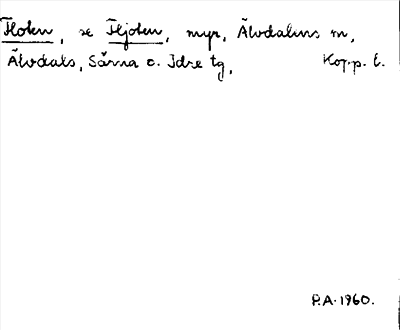 Floten, se Fljoten, myr, Älvdalens sn,
Älvdals, Särna o. Idre tg, Kopp. l.
P.A. 1960.